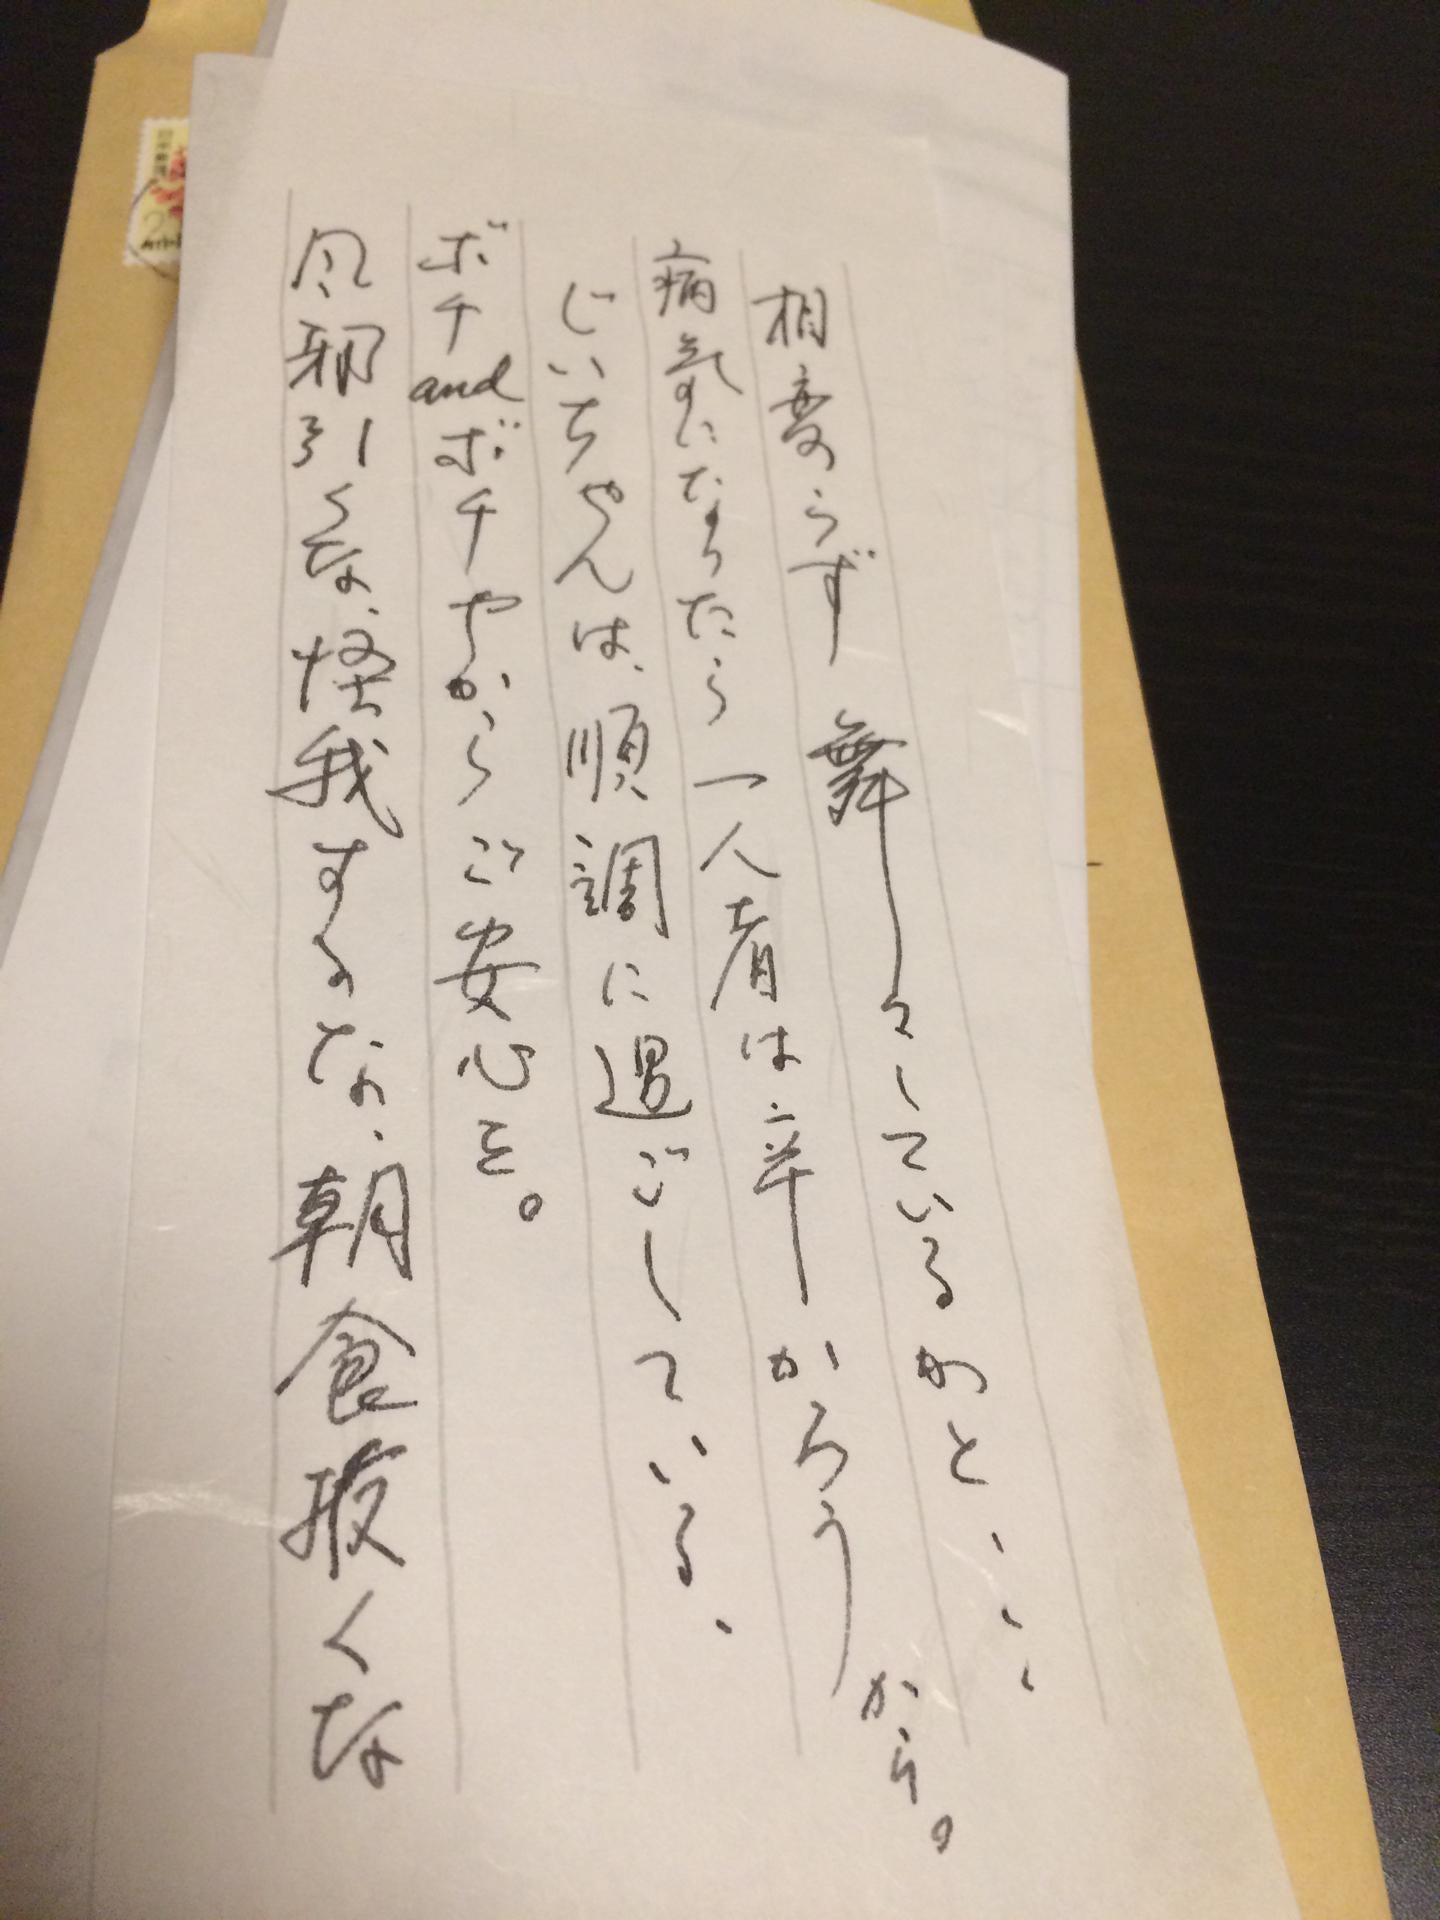 相変らず舞々しているかと、、、
病気になったら一人者は辛かろうから。
じいちゃんは、順調に過ごしている、
ボチandボチやからご安心を。
風邪引くな、怪我するな、朝食抜くな